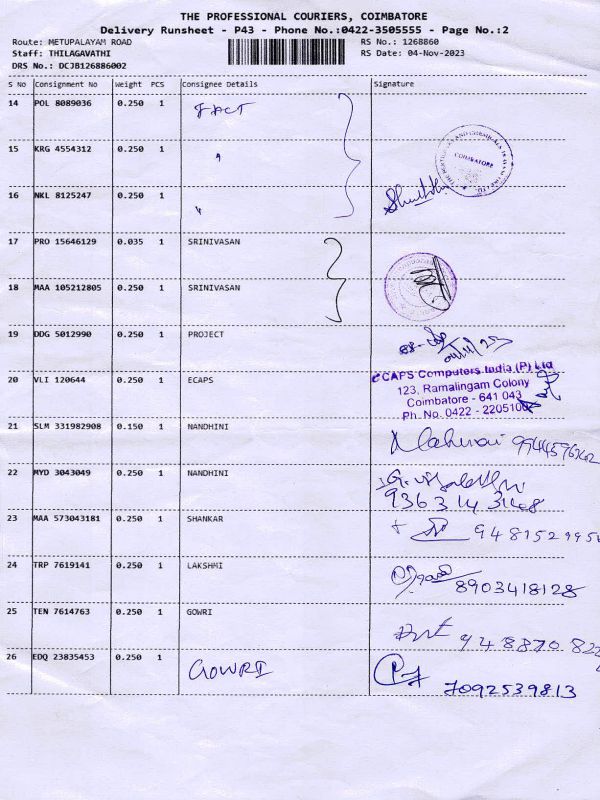 THE PROFESSIONAL COURIERS, COIMBATORE
Delivery Runsheet - P43 - Phone No.:0422-3505555 - Page No.:2
Route: METUPALAYAM ROAD
Staff: THILAGAVATHI
DRS No.: DCJB126886002
RS No.: 1268860
RS Date: 04-Nov-2023
S No Consignment No Weight PCS Consignee Details Signature
14 POL 8089036 0.250 1 FACT
15 KRG 4554312 0.250 1 "
16 NKL 8125247 0.250 1 "
COIMBATORE
17 PRO 15646129 0.035 1 SRINIVASAN
18 MAA 105212805 0.250 1 SRINIVASAN
19 DDG 5012990 0.250 1 PROJECT
20 VLI 120644 0.250 1 ECAPS
eCAPS Computers India (P) Ltd
123, Ramalingam Colony
Coimbatore - 641 043
Ph. No. 0422 - 2205100
21 SLM 331982908 0.150 1 NANDHINI
22 MYD 3043049 0.250 1 NANDHINI
9363143148
23 MAA 573043181 0.250 1 SHANKAR
24 TRP 7619141 0.250 1 LAKSHMI 8903418128
25 TEN 7614763 0.250 1 GOWRI
26 EDQ 23835453 0.250 1 GOWRI 7092539813